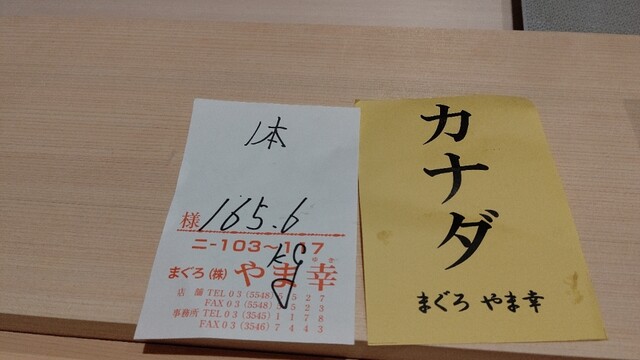 1本
様 165.6
kg
ニ-103~117
まぐろ(株) やま幸
ゆき
店舗 TEL 03 (5548)
FAX 03 (5548)
事務所 TEL 03 (3545) 1178
FAX 03 (3546) 7443
カナダ
まぐろ やま幸